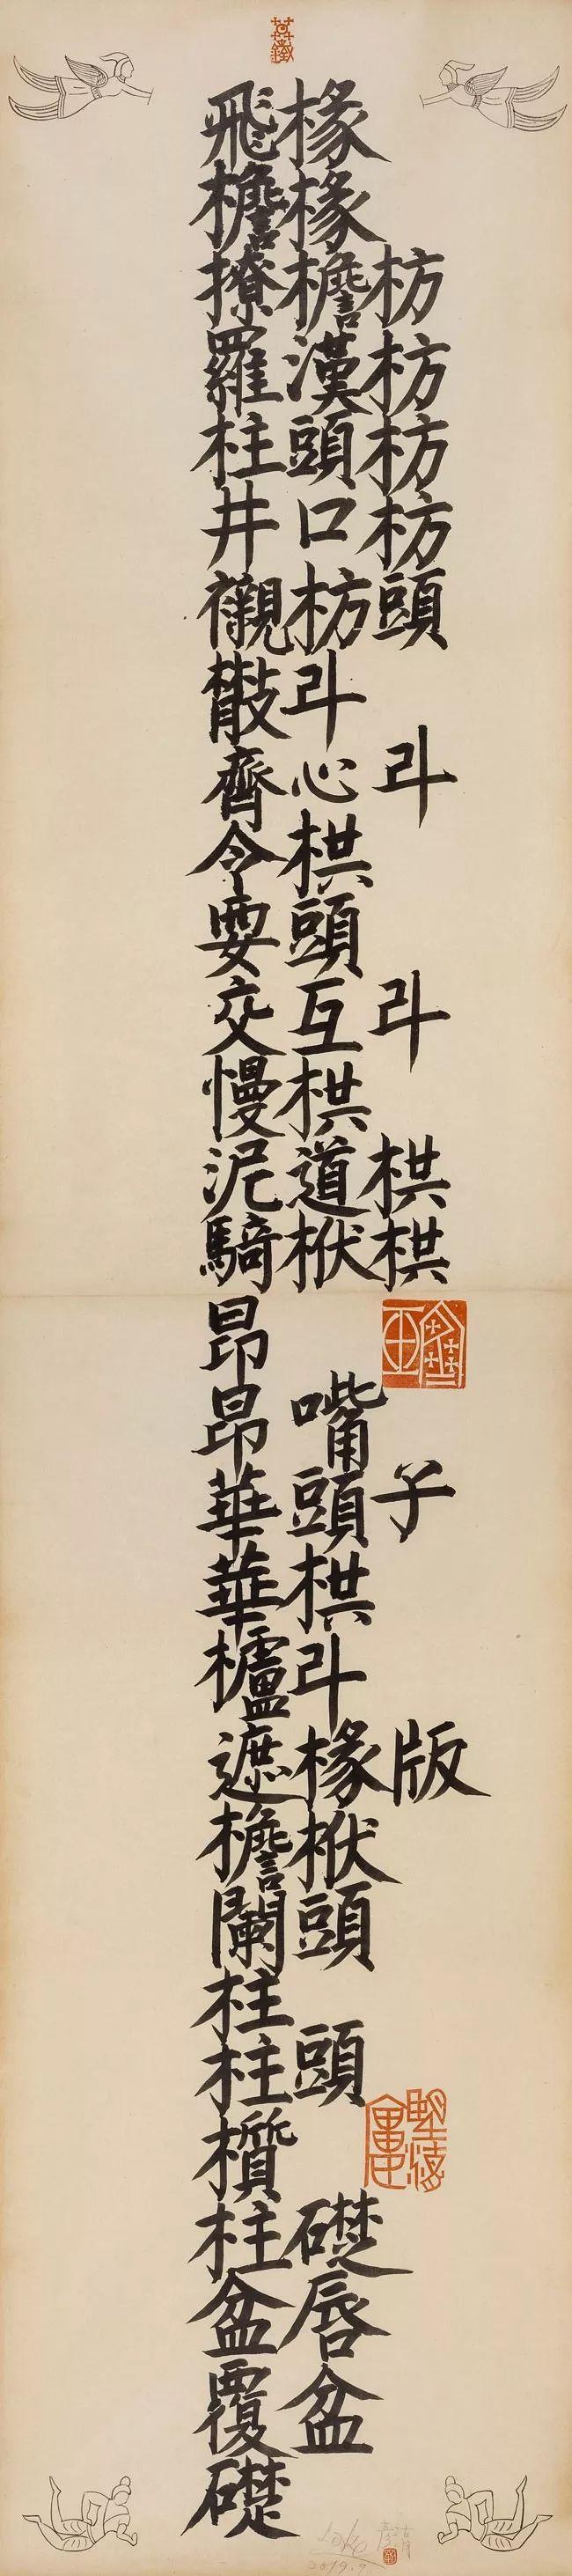 飛椽
檐椽
撩檐枋
羅漢枋
柱頭枋
井口枋
襯枋頭
㪚斗
齊心斗
令栱
耍頭
交互斗
慢栱
泥道栱
騎栿栱
昂
昂嘴
華頭子
華栱
櫨斗
遮椽版
檐栿
闌頭
柱
柱頭
櫍
柱礎
盆唇
覆盆
礎
2019.9